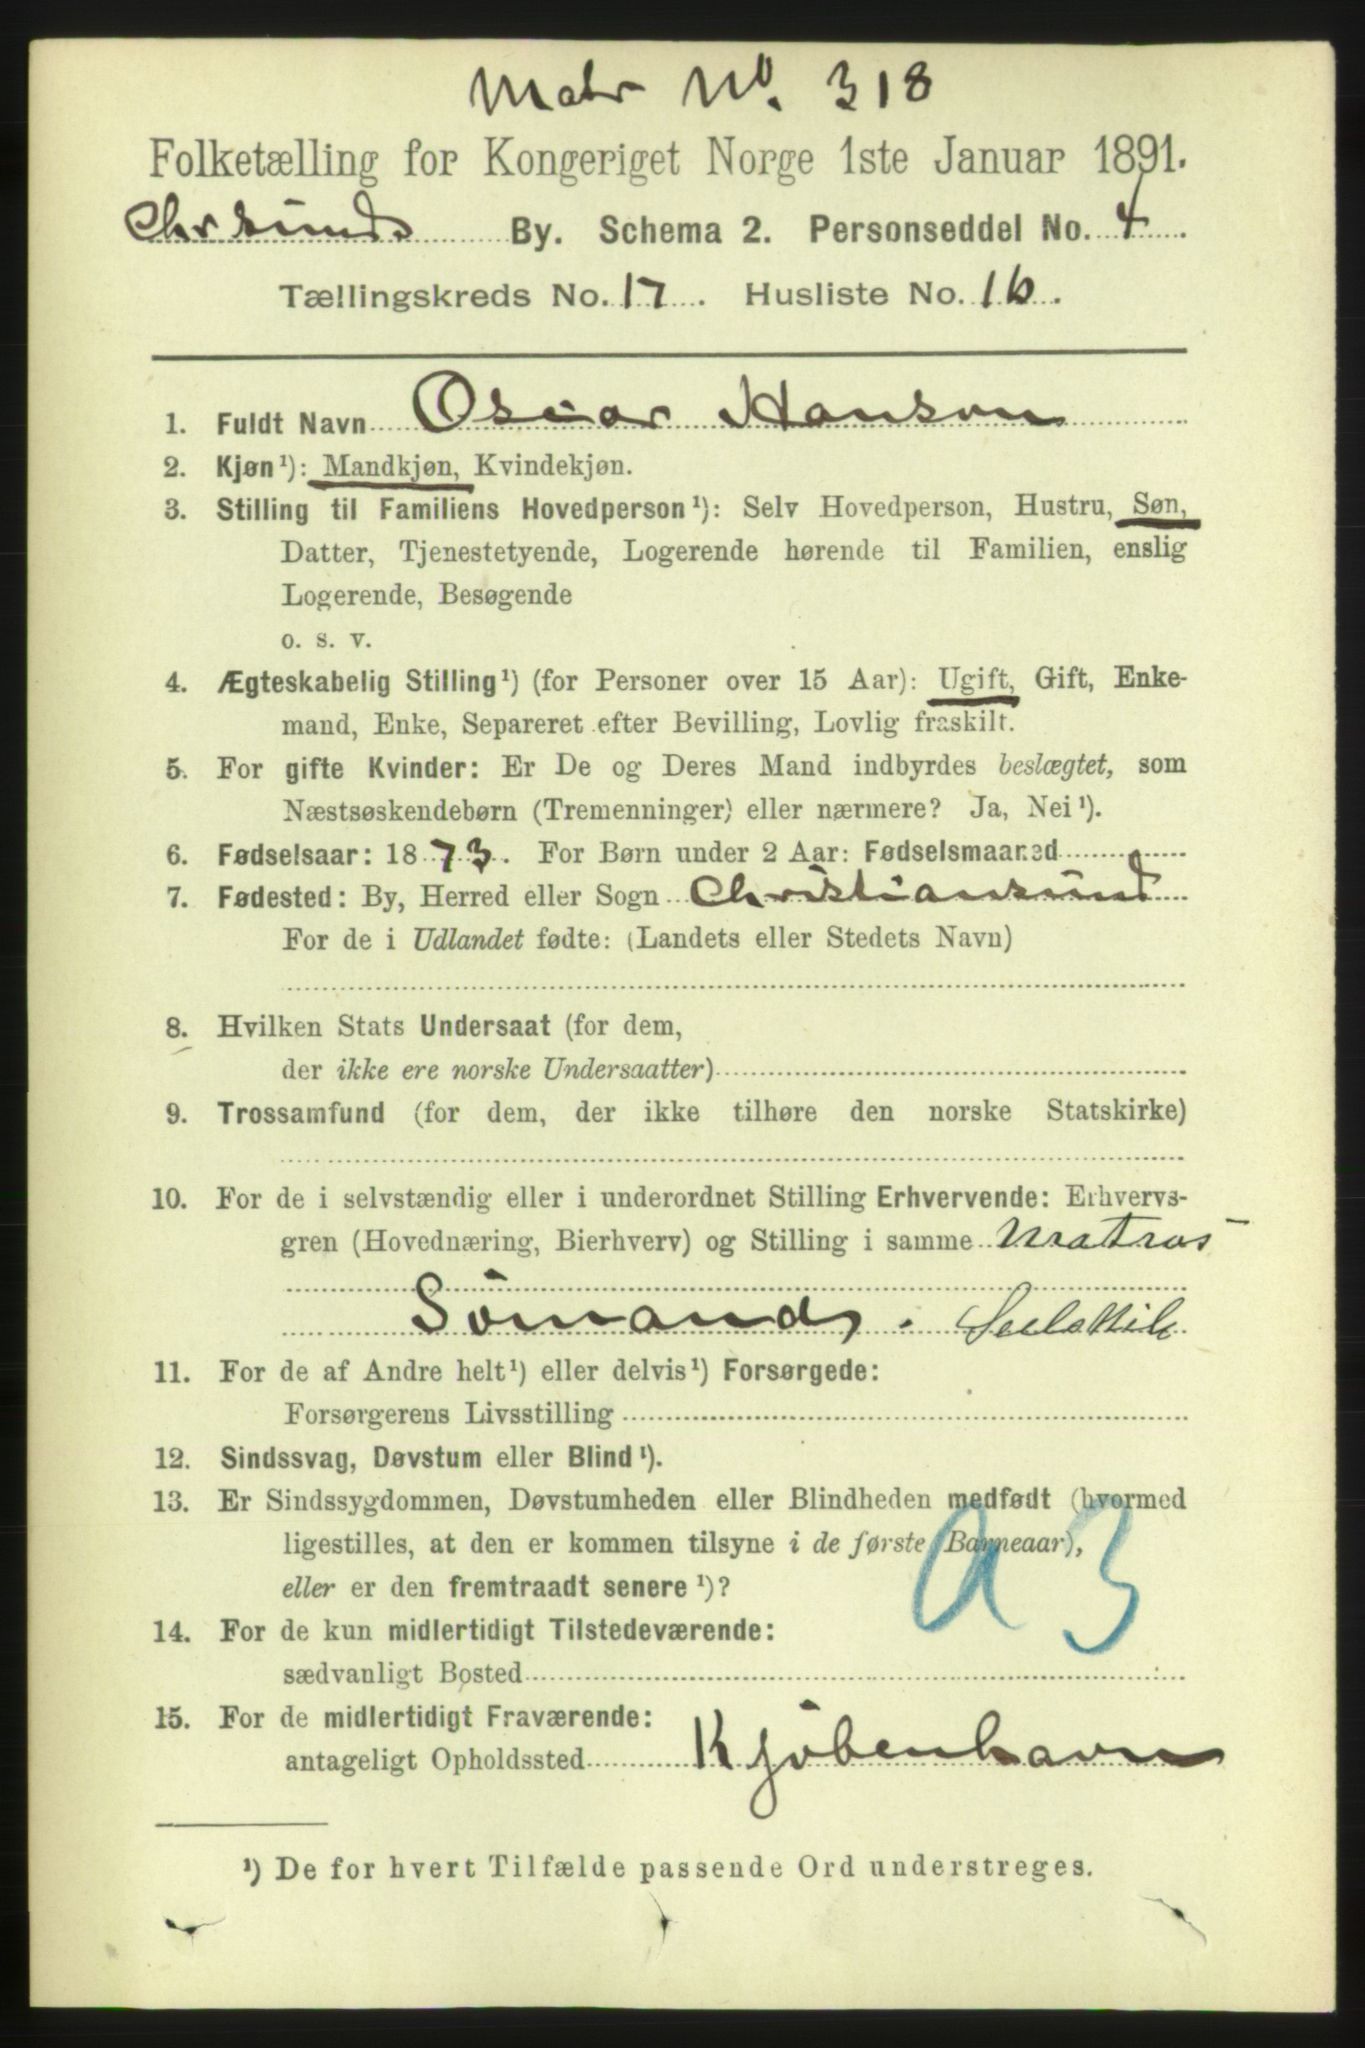 Matr No. 318
Folketælling for Kongeriget Norge 1ste Januar 1891.
Chrsunds By. Schema 2. Personseddel No. 4.
Tællingskreds No. 17. Husliste No. 16.
1. Fuldt Navn Oscar Hansen
2. Kjøn¹): Mandkjøn, Kvindekjøn.
3. Stilling til Familiens Hovedperson¹): Selv Hovedperson, Hustru, Søn,
Datter, Tjenestetyende, Logerende hørende til Familien, enslig
Logerende, Besøgende
o. s. v.
4. Ægteskabelig Stilling¹) (for Personer over 15 Aar): Ugift, Gift, Enke-
mand, Enke, Separeret efter Bevilling, Lovlig fraskilt.
5. For gifte Kvinder: Er De og Deres Mand indbyrdes beslægtet, som
Næstsøskendebørn (Tremenninger) eller nærmere? Ja, Nei¹).
6. Fødselsaar: 1873. For Børn under 2 Aar: Fødselsmaaned
7. Fødested: By, Herred eller Sogn Christiansund
For de i Udlandet fødte: (Landets eller Stedets Navn)
8. Hvilken Stats Undersaat (for dem,
der ikke ere norske Undersaatter)
9. Trossamfund (for dem, der ikke tilhøre den norske Statskirke)
10. For de i selvstændig eller i underordnet Stilling Erhvervende: Erhvervs-
gren (Hovednæring, Bierhverv) og Stilling i samme Matros
Sömands.
11. For de af Andre helt¹) eller delvis¹) Forsørgede:
Forsørgerens Livsstilling
12. Sindssvag, Døvstum eller Blind¹).
13. Er Sindssygdommen, Døvstumheden eller Blindheden medfødt (hvormed
ligestilles, at den er kommen tilsyne i de første Barneaar),
eller er den fremtraadt senere¹)?
a 3
14. For de kun midlertidigt Tilstedeværende:
sædvanligt Bosted
15. For de midlertidigt Fraværende:
antageligt Opholdssted Kjöbenhavn
¹) De for hvert Tilfælde passende Ord understreges.